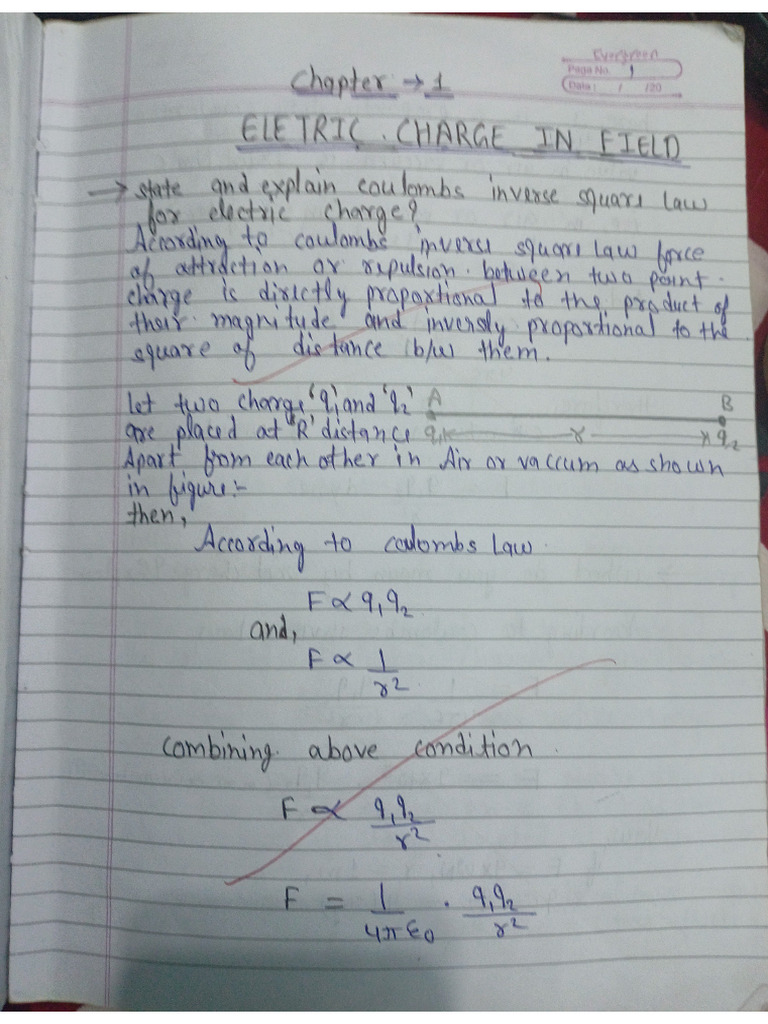 Evergreen
Page No. 1
Date: / /20
Chapter → 1
ELETRIC. CHARGE IN FIELD
→ state and explain coulombs inverse square law
for electric charge?
According to coulombs inverse square law force
of attraction or repulsion. between two point.
charge is directly proportional to the product of
their magnitude and inversly proportional to the
square of distance (b/w) them.
Let two charge 'q1' and 'q2' A B
are placed at 'R' distance q1 r q2
Apart from each other in Air or vaccum as shown
in figure:-
then,
According to coulombs Law.
F ∝ q1q2
and,
F ∝ 1/r²
combining. above condition.
F ∝ q1q2/r²
F = 1/4πε0 . q1q2/r²